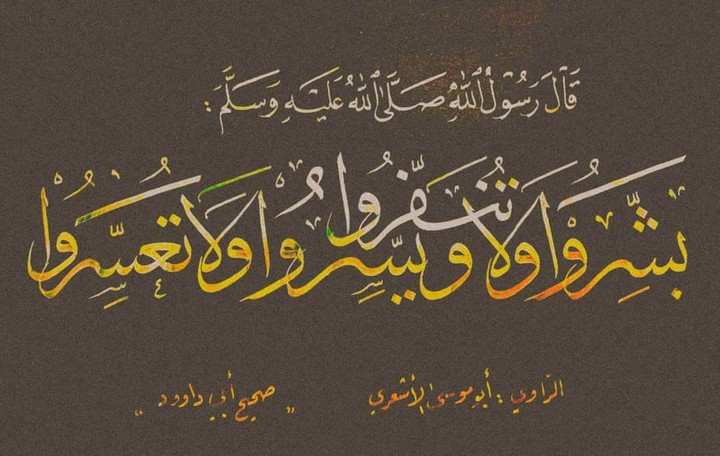 قَالَ رَسُوْلُ اللّٰهِ صَلَّى اللّٰهُ عَلَيْهِ وَسَلَّمَ :
بَشِّرُوْا وَلَا تُنَفِّرُوْا وَيَسِّرُوْا وَلَا تُعَسِّرُوْا
الرّاوي : أبو موسى الأشعري
" صحيح أبي داوود "